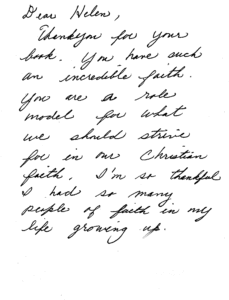 Dear Helen,
Thankyou for your
book. You have such
an incredible faith.
You are a role
model for what
we should strive
for in our Christian
faith. I'm so thankful
I had so many
people of faith in my
life growing up.